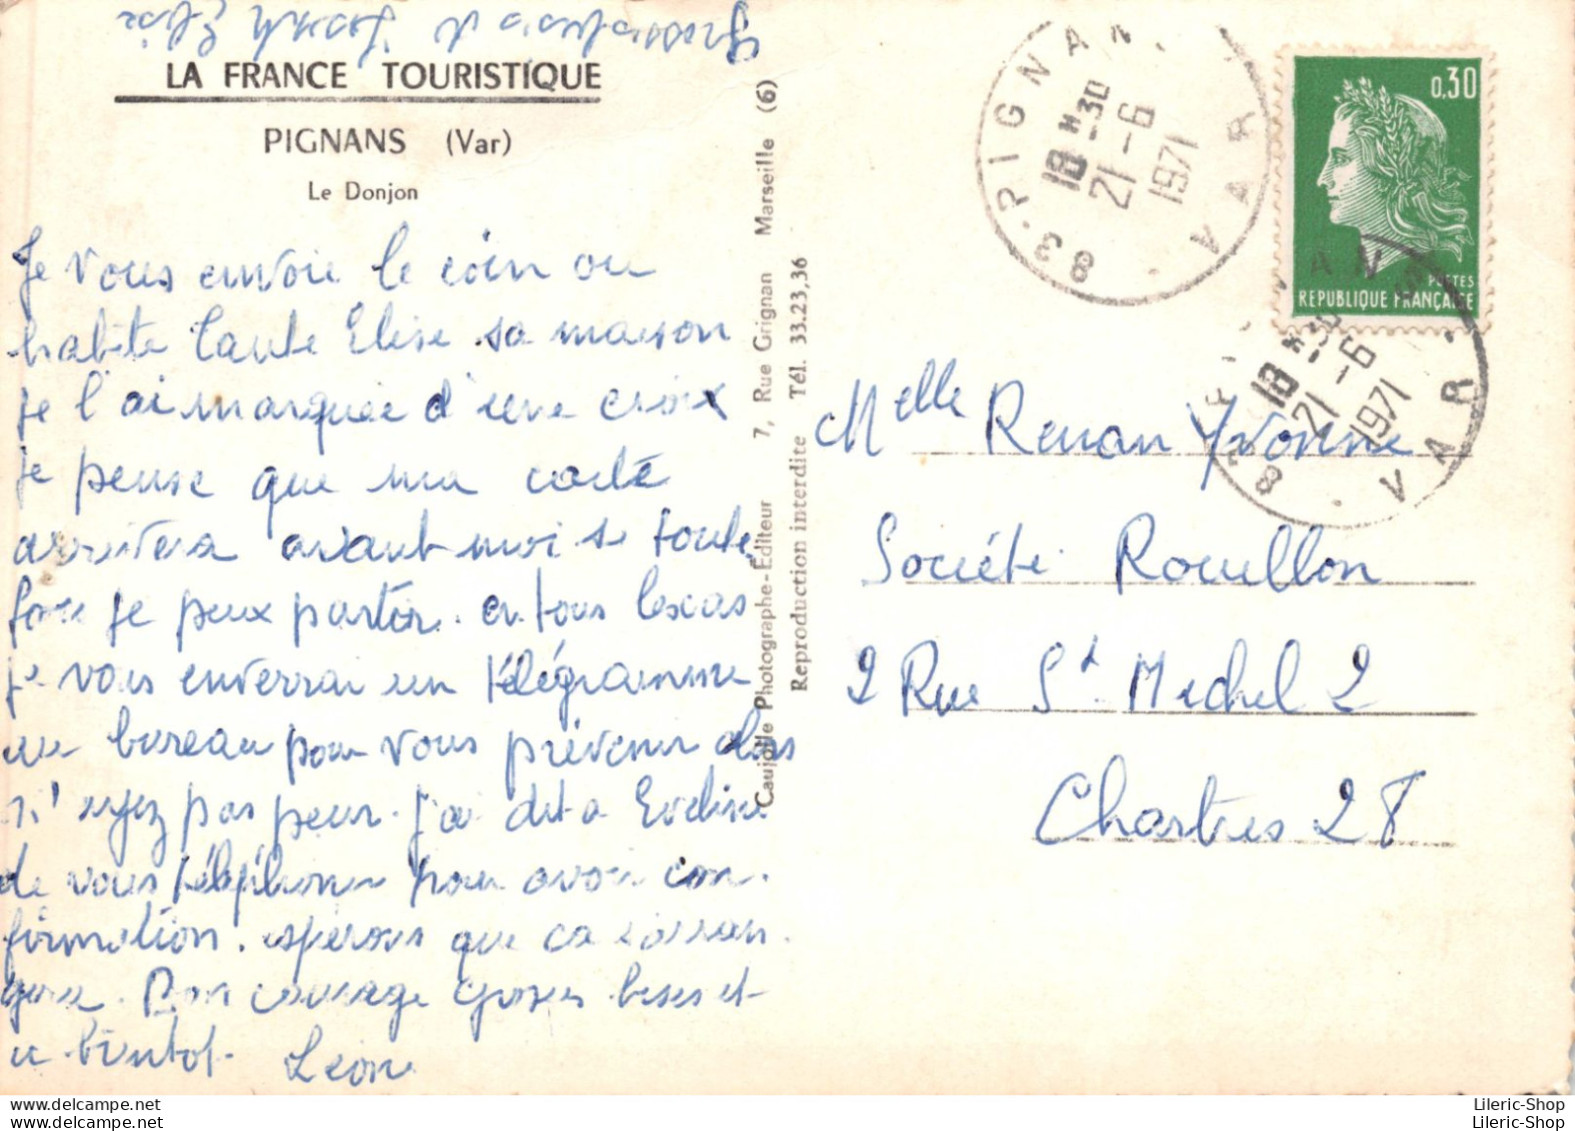 LA FRANCE TOURISTIQUE
PIGNANS (Var)
Le Donjon
Je vous envoie le coin ou
habite Tante Elise sa maison
je l'ai marquée d'une croix
je pense que ma carte
arrivera avant moi si toute
fois je peux partir. en tous les cas
je vous enverrai un télégramme
au bureau pour vous prévenir alors
n'ayez pas peur. J'ai dit a Eveline
de vous téléphoner pour avoir con
firmation. esperons que ca s'arran
gera. Bon courage Grosses bises et
a bientot. Léone
Caujolle Photographe-Editeur 7, Rue Grignan Marseille (6)
Reproduction interdite Tél. 33.23,36
83·PIGNANS VAR
18 H30
21-6
1971
0,30
POSTES
REPUBLIQUE FRANÇAISE
83 PIGNANS VAR
18 H30
21-6
1971
Melle Renan Yvonne
Société Rouillon
2 Rue St Michel 2
Chartres 28
Lileric-Shop
Lileric-Shop
Lileric-Shop
Lileric-Shop